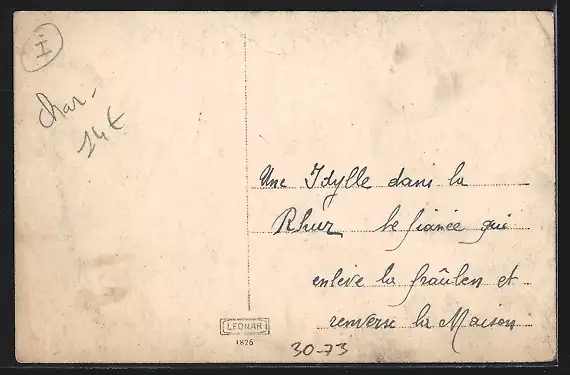 I
Char-
14€
Une Idylle dans la
Rhur le fiancé qui
enlève la fraûlen et
renverse la Maison
LEONAR
1826
30-73